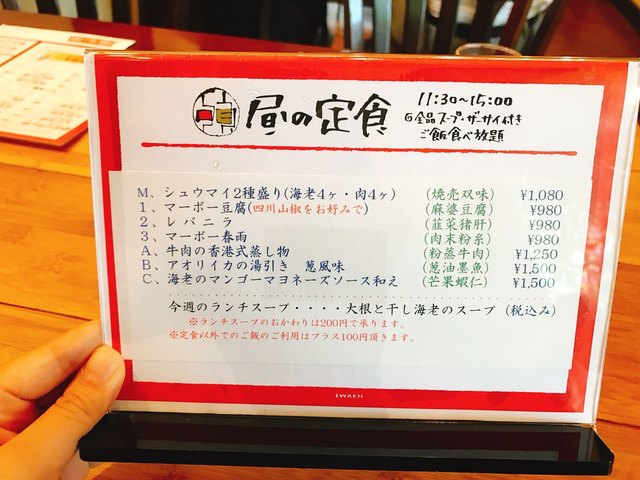 昼の定食
11:30〜15:00
全品スープ・ザーサイ付き
ご飯食べ放題
M、シュウマイ2種盛り(海老4ヶ・肉4ヶ) (焼売双味) ¥1,080
1、マーボー豆腐(四川山椒をお好みで) (麻婆豆腐) ¥980
2、レバニラ (韮菜猪肝) ¥980
3、マーボー春雨 (肉末粉糸) ¥980
A、牛肉の香港式蒸し物 (粉蒸牛肉) ¥1,250
B、アオリイカの湯引き 葱風味 (葱油墨魚) ¥1,500
C、海老のマンゴーマヨネーズソース和え (芒果蝦仁) ¥1,500
今週のランチスープ・・・・大根と干し海老のスープ (税込み)
※ランチスープのおかわりは200円で承ります。
※定食以外でのご飯のご利用はプラス100円頂きます。
SWAEN